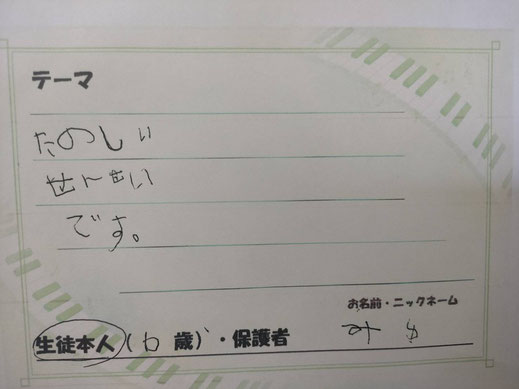 テーマ
たのしい
せんせい
です。
お名前・ニックネーム
生徒本人(6 歳)・保護者 みゆ